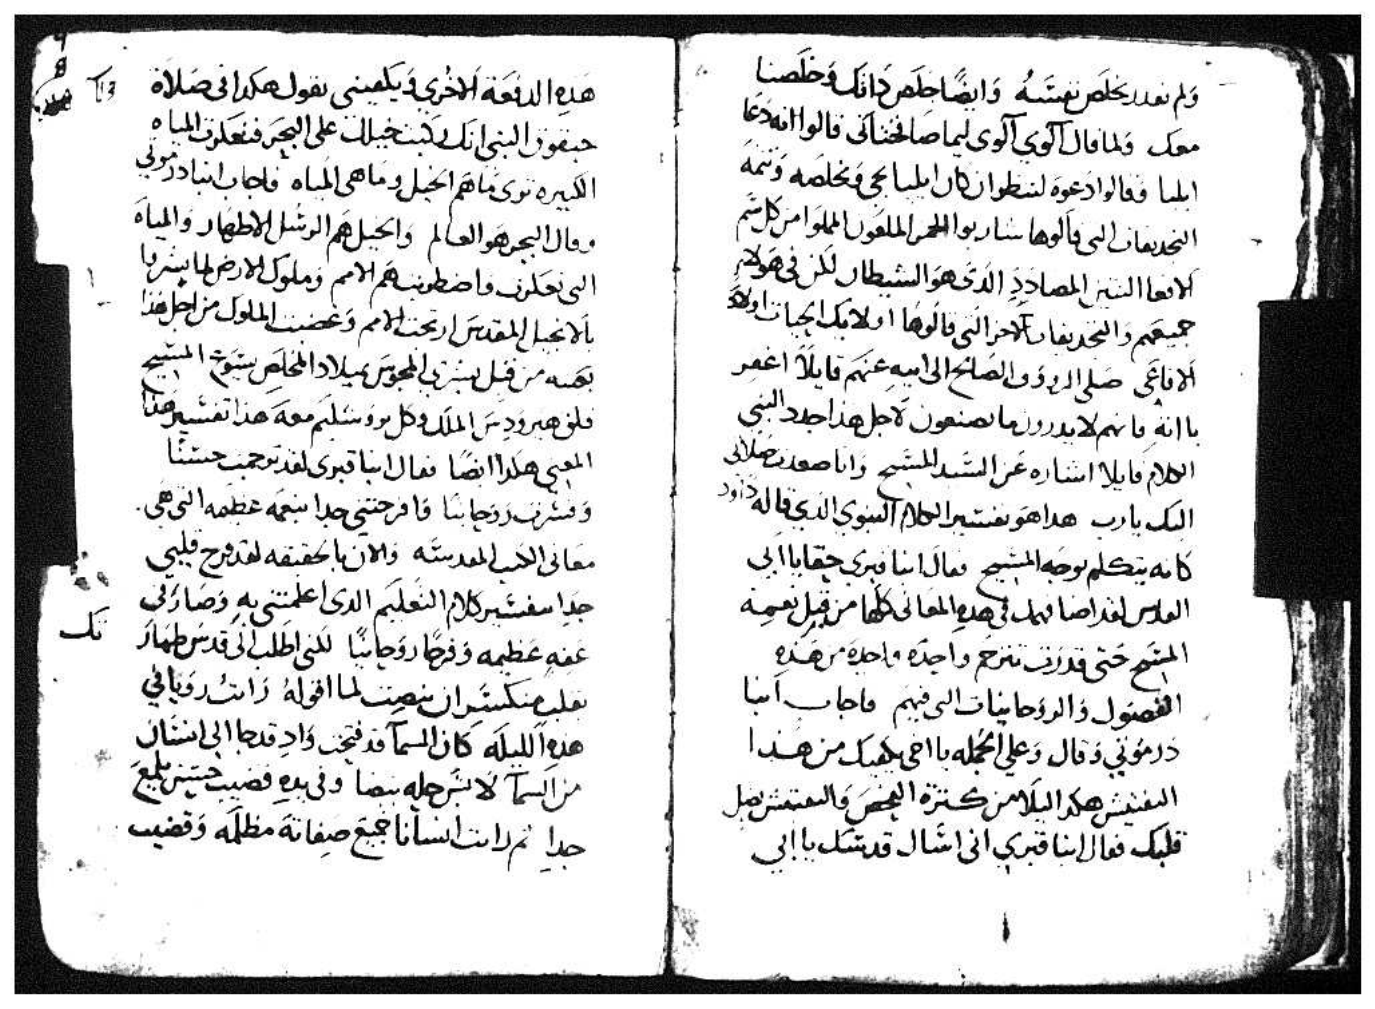 ولم تقدر يخلص نفسه وايضا خلص ذاتك وخلصنا
معك ولما قال آلوي آلوي ليما صافختاني قالوا انه دعا
ايليا وقالوا دعوه لننظر ان كان ايليا يجي ويخلصه وتتمه
التجديفات التي قالوها شاربوا الخمر الملعون المملوا من كل سم
الافعا التنين المصادد الذي هو الشيطان لكن في هولاي
جميعهم والتجديفات الاخر التي قالوها اولايك الحيات اولاد
الافاعي صلي الرووف الصالح الى ابيه عنهم قايلا اغفر
يا ابتاه فانهم لا يدرون ما يصنعون لاجل هذا جدد النبي
الكلام قايلا اشاره عن السيد المسيح وانا صعدت صلاتي
اليك يارب هذا هو تفسير الكلام النبوي الذي قاله داود
كانه يتكلم بوجه المسيح فقال انبا قبري حقا يا ابي
القديس لقد اضا فهمك في هذه المعاني كلها من قبل نعمة
المسيح حتى قدرت تترجم واحده واحدة من هذه
الفصول والروحانيات التي فيهم فاجاب انبا
درموني وقال وعلي الجمله يا اخي يكفيك من هذا
التفتيش هكدا ليلا من كترة الفحص والتفتيش يضل
قلبك فقال انبا قبري اني اسال قدسك يا ابي
هذه الدفعة الاخري ويكفيني يقول هكدا في صلاة
حبقوق النبي انك ركبت خيلك على البحر فتعكرت المياه
الكبيره تري ما هم الخيل وما هي المياه فاجاب انبا درموني
وقال البحر هو العالم والخيل هم الرسل الاطهار والمياه
التي تعكرت واضطربت هم الامم وملوك الارض لما بشروا
بالانجيل المقدس ارتجت الامم وغضبت الملوك من اجل هذا
بعينه من قبل بشري المجوس بميلاد المخلص يسوع المسيح
قلق هيرودس الملك وكل يروشليم معه هذا تفسير هذا
المعني هكدا ايضا فقال انبا قبري لقد ترجمت حسنا
وفسرت روحانيا وافرحتني جدا بنعمه عظيمه التي هي
معاني الكتب المقدسه والان بالحقيقه لقد فرح قلبي
جدا بتفسير كلام التعليم الذي اعلمتني به وصار لي
عفه عظيمه وفرحا روحانيا لكني اطلب الي قدس طهار
بقلب منكسر ان ينصت لما اقوله رايت رويا في
هذه الليله كان السما قد فتحت واد قد جا الي انسان
من السما لابس حله بيضا وفي يده قضيب حسن يلمع
جدا ثم رايت انسانا جميع صفاته مظلمه وقضيب